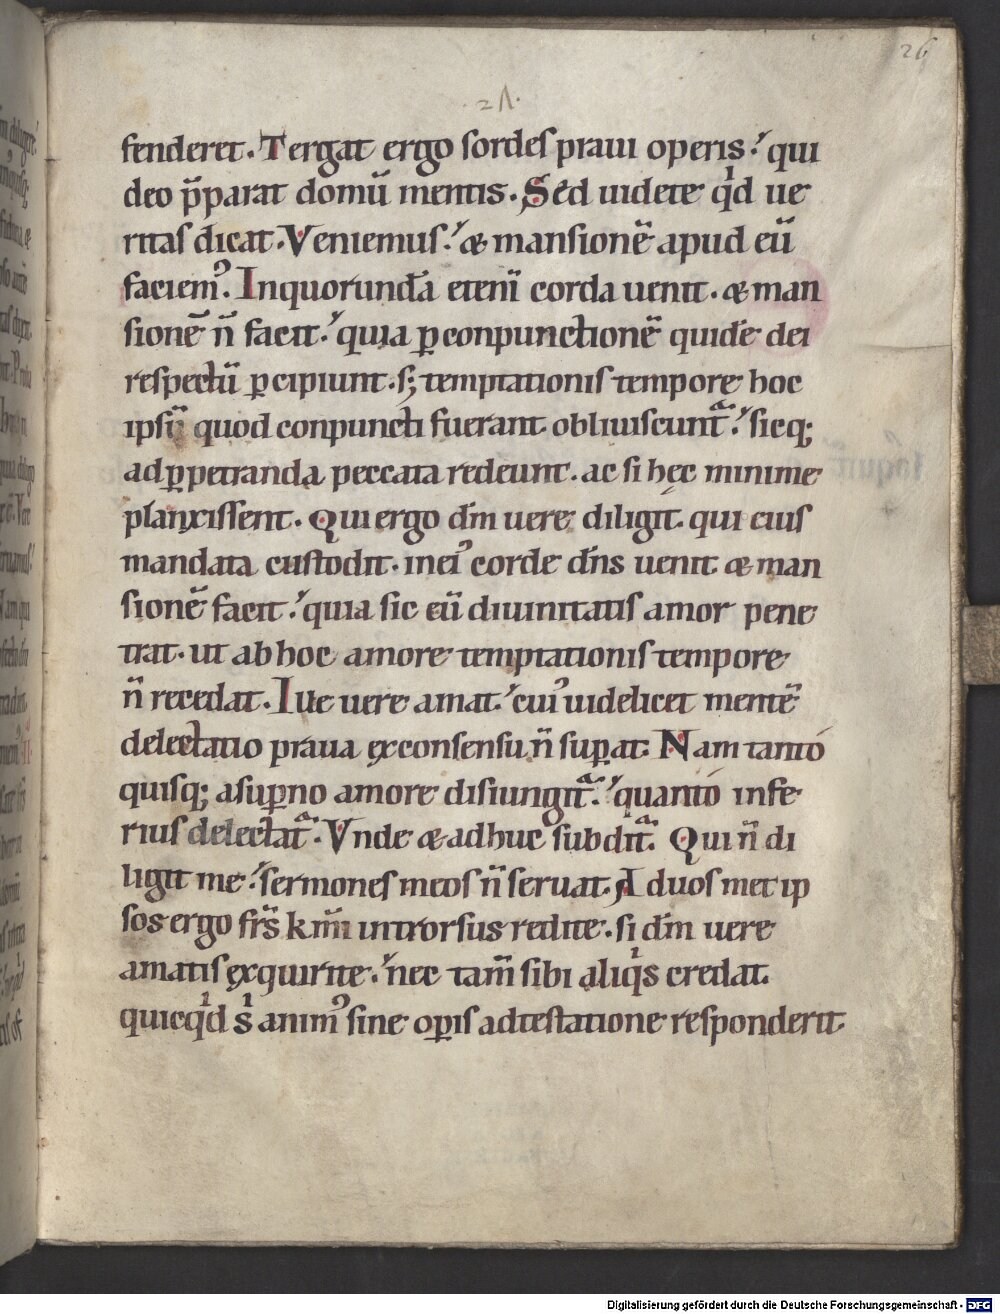 26
21.
fenderet. Tergat ergo sordes praui operis. qui
deo p̄parat domū mentis. Sed uidete qͥd ue
ritas dicat. Veniemus. & mansionē apud eū
faciem᾿. Inquorundā etenī corda uenit. & man
sionē n̄ facit. quia ꝑ conpunctionē quidē dei
respectū ꝑcipiunt. sꝫ temptationis tempore hoc
ipsū quod conpuncti fuerant obliuiscunt᷑. sicq;
ad ꝑpetranda peccata redeunt. ac si hęc minime
planxissent. Qui ergo dm̄ uere diligit. qui eius
mandata custodit. in ei᾿ corde dn̄s uenit & man
sionē facit. quia sic eū diuinitatis amor pene
trat. ut ab hoc amore temptationis tempore
n̄ recedat. Ille uere amat. cui᾿ uidelicet mentē
delectatio praua ex consensu n̄ suꝑat. Nam tantó
quisq; a suꝑno amore disiungit᷑. quantó infe
rius delectat᷑. Vnde & adhuc subdit᷑. Qui n̄ di
ligit me. sermones meos n̄ seruat. Ad uos met ip
sos ergo fr̄s k̄mi introrsus redite. si dm̄ uere
amatis exquirite. nec tam̄ sibi aliqͥs credat.
quicqͥd sͥ anim᾿ sine oꝑis adtestatione responderit
Digitalisierung gefördert durch die Deutsche Forschungsgemeinschaft - DFG